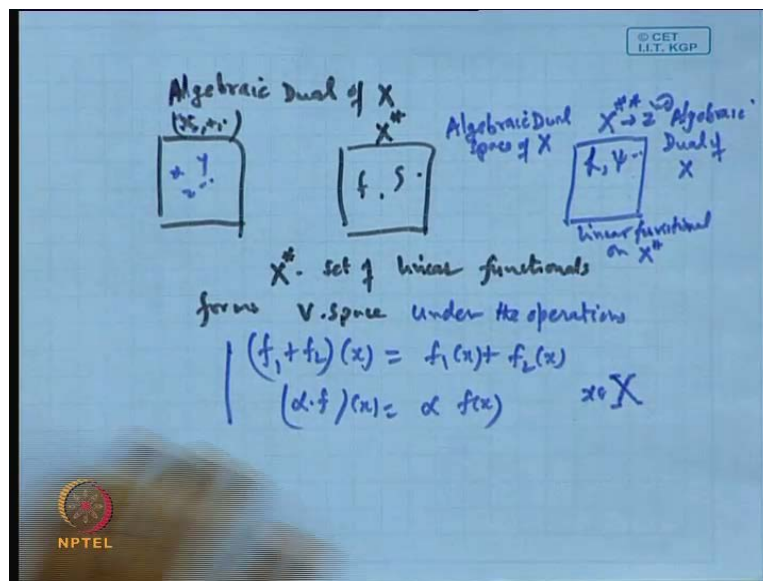 © CET
I.I.T. KGP
Algebraic Dual of X
(X, +, ·
x y
z ..
X*
f, g.
Algebraic Dual
space of X
X** → 2nd Algebraic
Dual of
X
h, ψ..
linear functional
on X*
X* - set of linear functionals
forms V. space under the operations
(f₁+f₂)(x) = f₁(x)+ f₂(x)
(α·f)(x) = α f(x) x∈X
NPTEL